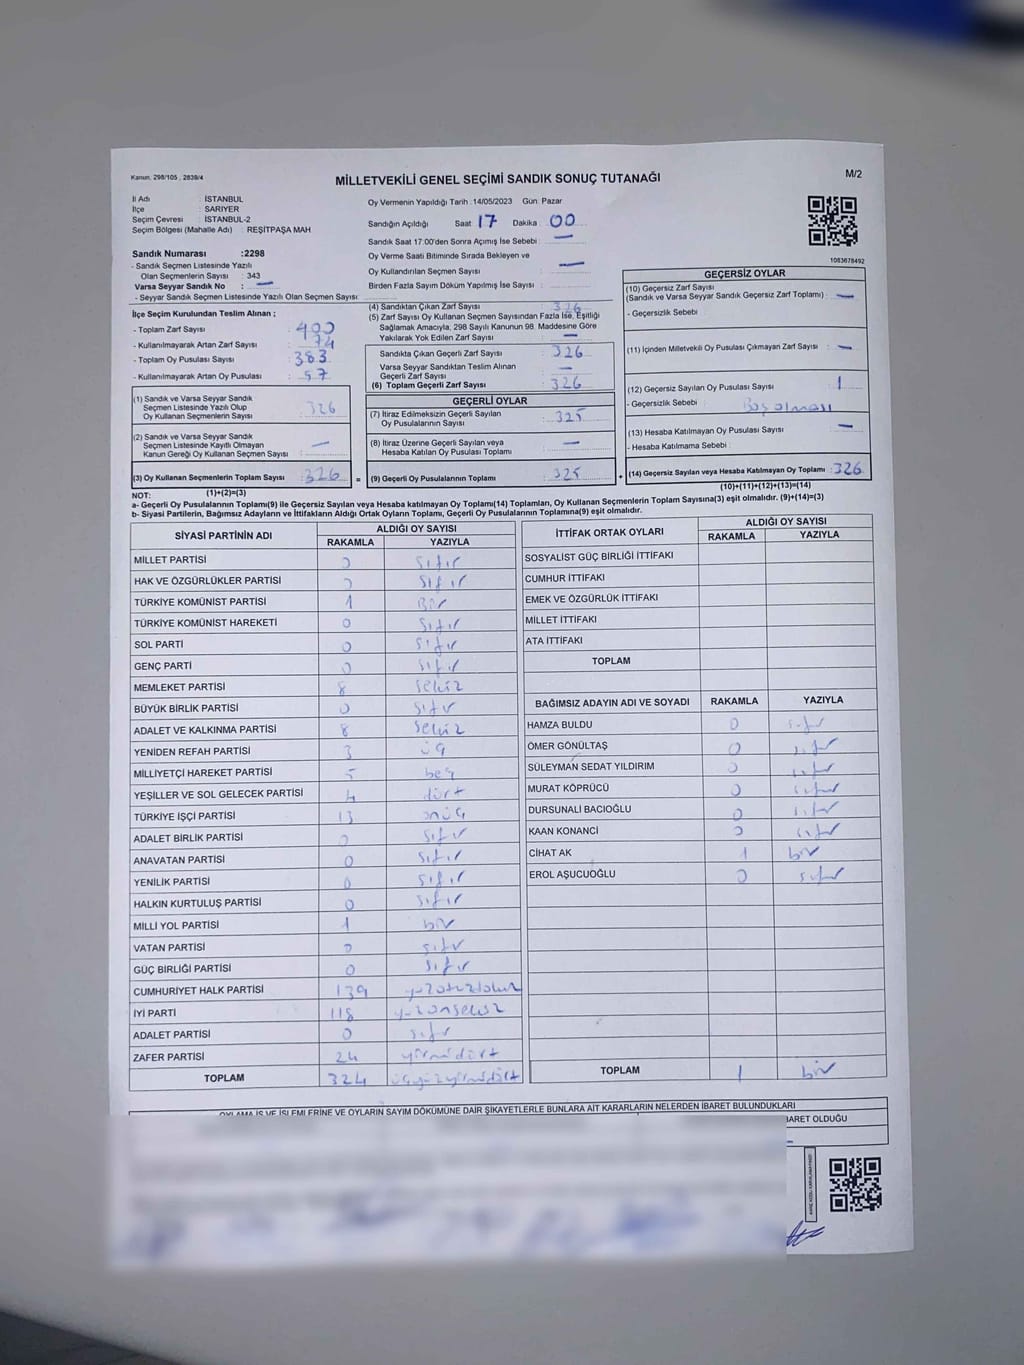 Kanun, 298/105 , 2839/4
MİLLETVEKİLİ GENEL SEÇİMİ SANDIK SONUÇ TUTANAĞI
M/2
İl Adı : İSTANBUL
İlçe : SARIYER
Seçim Çevresi : İSTANBUL-2
Seçim Bölgesi (Mahalle Adı) : REŞİTPAŞA MAH
Sandık Numarası :2298
- Sandık Seçmen Listesinde Yazılı
Olan Seçmenlerin Sayısı : 343
Varsa Seyyar Sandık No : —
- Seyyar Sandık Seçmen Listesinde Yazılı Olan Seçmen Sayısı :
Oy Vermenin Yapıldığı Tarih :14/05/2023 Gün: Pazar
Sandığın Açıldığı Saat: 17 Dakika : 00
Sandık Saat 17:00'den Sonra Açımış İse Sebebi : —
Oy Verme Saati Bitiminde Sırada Bekleyen ve
Oy Kullandırılan Seçmen Sayısı : —
Birden Fazla Sayım Döküm Yapılmış İse Sayısı :
1083678492
İlçe Seçim Kurulundan Teslim Alınan ;
- Toplam Zarf Sayısı : 400
- Kullanılmayarak Artan Zarf Sayısı : 74
- Toplam Oy Pusulası Sayısı : 383
- Kullanılmayarak Artan Oy Pusulası : 57
(1) Sandık ve Varsa Seyyar Sandık
Seçmen Listesinde Yazılı Olup
Oy Kullanan Seçmenlerin Sayısı : 326
(2) Sandık ve Varsa Seyyar Sandık
Seçmen Listesinde Kayıtlı Olmayan
Kanun Gereği Oy Kullanan Seçmen Sayısı : —
(3) Oy Kullanan Seçmenlerin Toplam Sayısı : 326
(1)+(2)=(3)
(4) Sandıktan Çıkan Zarf Sayısı : 326
(5) Zarf Sayısı Oy Kullanan Seçmen Sayısından Fazla İse, Eşitliği
Sağlamak Amacıyla; 298 Sayılı Kanunun 98. Maddesine Göre
Yakılarak Yok Edilen Zarf Sayısı : —
Sandıkta Çıkan Geçerli Zarf Sayısı : 326
Varsa Seyyar Sandıktan Teslim Alınan
Geçerli Zarf Sayısı : —
(6) Toplam Geçerli Zarf Sayısı : 326
GEÇERLİ OYLAR
(7) İtiraz Edilmeksizin Geçerli Sayılan
Oy Pusulalarının Sayısı : 325
(8) İtiraz Üzerine Geçerli Sayılan veya
Hesaba Katılan Oy Pusulası Toplamı : —
= (9) Geçerli Oy Pusulalarının Toplamı : 325
GEÇERSİZ OYLAR
(10) Geçersiz Zarf Sayısı
(Sandık ve Varsa Seyyar Sandık Geçersiz Zarf Toplamı) : —
- Geçersizlik Sebebi :
(11) İçinden Milletvekili Oy Pusulası Çıkmayan Zarf Sayısı : —
(12) Geçersiz Sayılan Oy Pusulası Sayısı : 1
- Geçersizlik Sebebi : Boş olması
(13) Hesaba Katılmayan Oy Pusulası Sayısı : —
- Hesaba Katılmama Sebebi :
+ (14) Geçersiz Sayılan veya Hesaba Katılmayan Oy Toplamı : 326
(10)+(11)+(12)+(13)=(14)
NOT:
a- Geçerli Oy Pusulalarının Toplamı(9) ile Geçersiz Sayılan veya Hesaba katılmayan Oy Toplamı(14) Toplamları, Oy Kullanan Seçmenlerin Toplam Sayısına(3) eşit olmalıdır. (9)+(14)=(3)
b- Siyasi Partilerin, Bağımsız Adayların ve İttifakların Aldığı Ortak Oyların Toplamı, Geçerli Oy Pusulalarının Toplamına(9) eşit olmalıdır.
SİYASİ PARTİNİN ADI ALDIĞI OY SAYISI
RAKAMLA YAZIYLA
MİLLET PARTİSİ 0 sıfır
HAK VE ÖZGÜRLÜKLER PARTİSİ 0 sıfır
TÜRKİYE KOMÜNİST PARTİSİ 1 Bir
TÜRKİYE KOMÜNİST HAREKETİ 0 sıfır
SOL PARTİ 0 sıfır
GENÇ PARTİ 0 sıfır
MEMLEKET PARTİSİ 8 sekiz
BÜYÜK BİRLİK PARTİSİ 0 sıfır
ADALET VE KALKINMA PARTİSİ 8 sekiz
YENİDEN REFAH PARTİSİ 3 üç
MİLLİYETÇİ HAREKET PARTİSİ 5 beş
YEŞİLLER VE SOL GELECEK PARTİSİ 4 dört
TÜRKİYE İŞÇİ PARTİSİ 13 onüç
ADALET BİRLİK PARTİSİ 0 sıfır
ANAVATAN PARTİSİ 0 sıfır
YENİLİK PARTİSİ 0 sıfır
HALKIN KURTULUŞ PARTİSİ 0 sıfır
MİLLİ YOL PARTİSİ 1 bir
VATAN PARTİSİ 0 sıfır
GÜÇ BİRLİĞİ PARTİSİ 0 sıfır
CUMHURİYET HALK PARTİSİ 139 yüzotuzdokuz
İYİ PARTİ 118 yüzonsekiz
ADALET PARTİSİ 0 sıfır
ZAFER PARTİSİ 24 yirmidört
TOPLAM 324 üçyüzyirmidört
İTTİFAK ORTAK OYLARI ALDIĞI OY SAYISI
RAKAMLA YAZIYLA
SOSYALİST GÜÇ BİRLİĞİ İTTİFAKI
CUMHUR İTTİFAKI
EMEK VE ÖZGÜRLÜK İTTİFAKI
MİLLET İTTİFAKI
ATA İTTİFAKI
TOPLAM
BAĞIMSIZ ADAYIN ADI VE SOYADI RAKAMLA YAZIYLA
HAMZA BULDU 0 sıfır
ÖMER GÖNÜLTAŞ 0 sıfır
SÜLEYMAN SEDAT YILDIRIM 0 sıfır
MURAT KÖPRÜCÜ 0 sıfır
DURSUNALİ BACIOĞLU 0 sıfır
KAAN KONANCİ 0 sıfır
CİHAT AK 1 bir
EROL AŞUCUOĞLU 0 sıfır
TOPLAM 1 bir
OYLAMA İŞ VE İŞLEMLERİNE VE OYLARIN SAYIM DÖKÜMÜNE DAİR ŞİKAYETLERLE BUNLARA AİT KARARLARIN NELERDEN İBARET BULUNDUKLARI
İBARET OLDUĞU